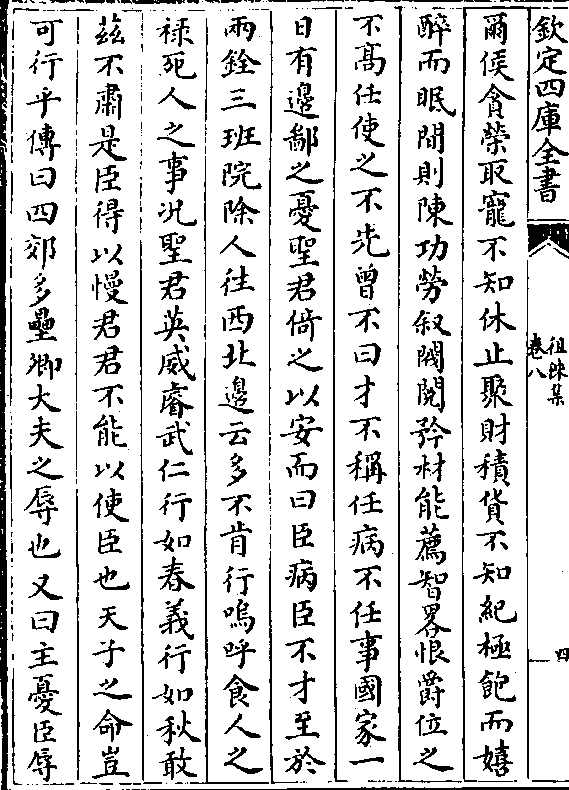 欽定四庫全書
徂徠集
卷八
四
爾侯貪榮取寵不知休止聚財積貨不知紀極飽而嬉
醉而眠間則陳功勞叙閥閲矜材能薦智畧恨爵位之
不髙任使之不先曾不曰才不稱任病不任事國家一
日有邊鄙之憂聖君倚之以安而曰臣病臣不才至於
兩銓三班院除人往西北邊云多不肯行嗚呼食人之
禄死人之事况聖君英威睿武仁行如春義行如秋敢
兹不肅是臣得以慢君君不能以使臣也天子之命豈
可行乎傳曰四郊多壘卿大夫之辱也又曰主憂臣辱